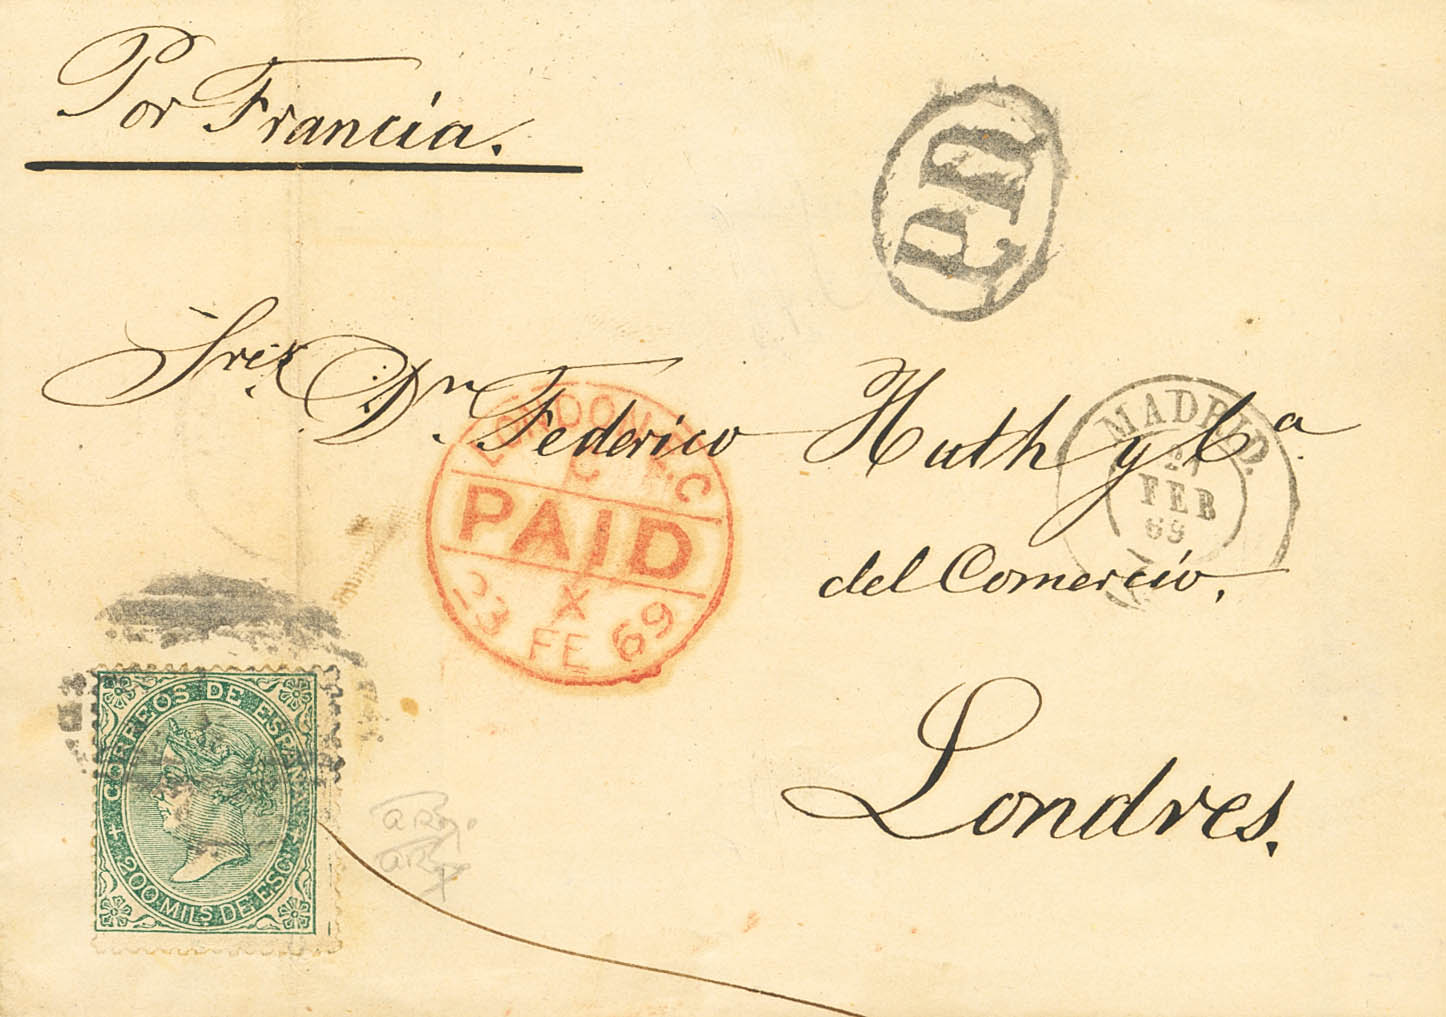 Por Francia.
PD
Sres. Dn. Federico Huth y Ca
del Comercio.
Londres.
LONDON E.C
C
PAID
X
23 FE 69
MADRID.
21
FEB
69
CORREOS DE ESPAÑA
200 MILS DE ESCO